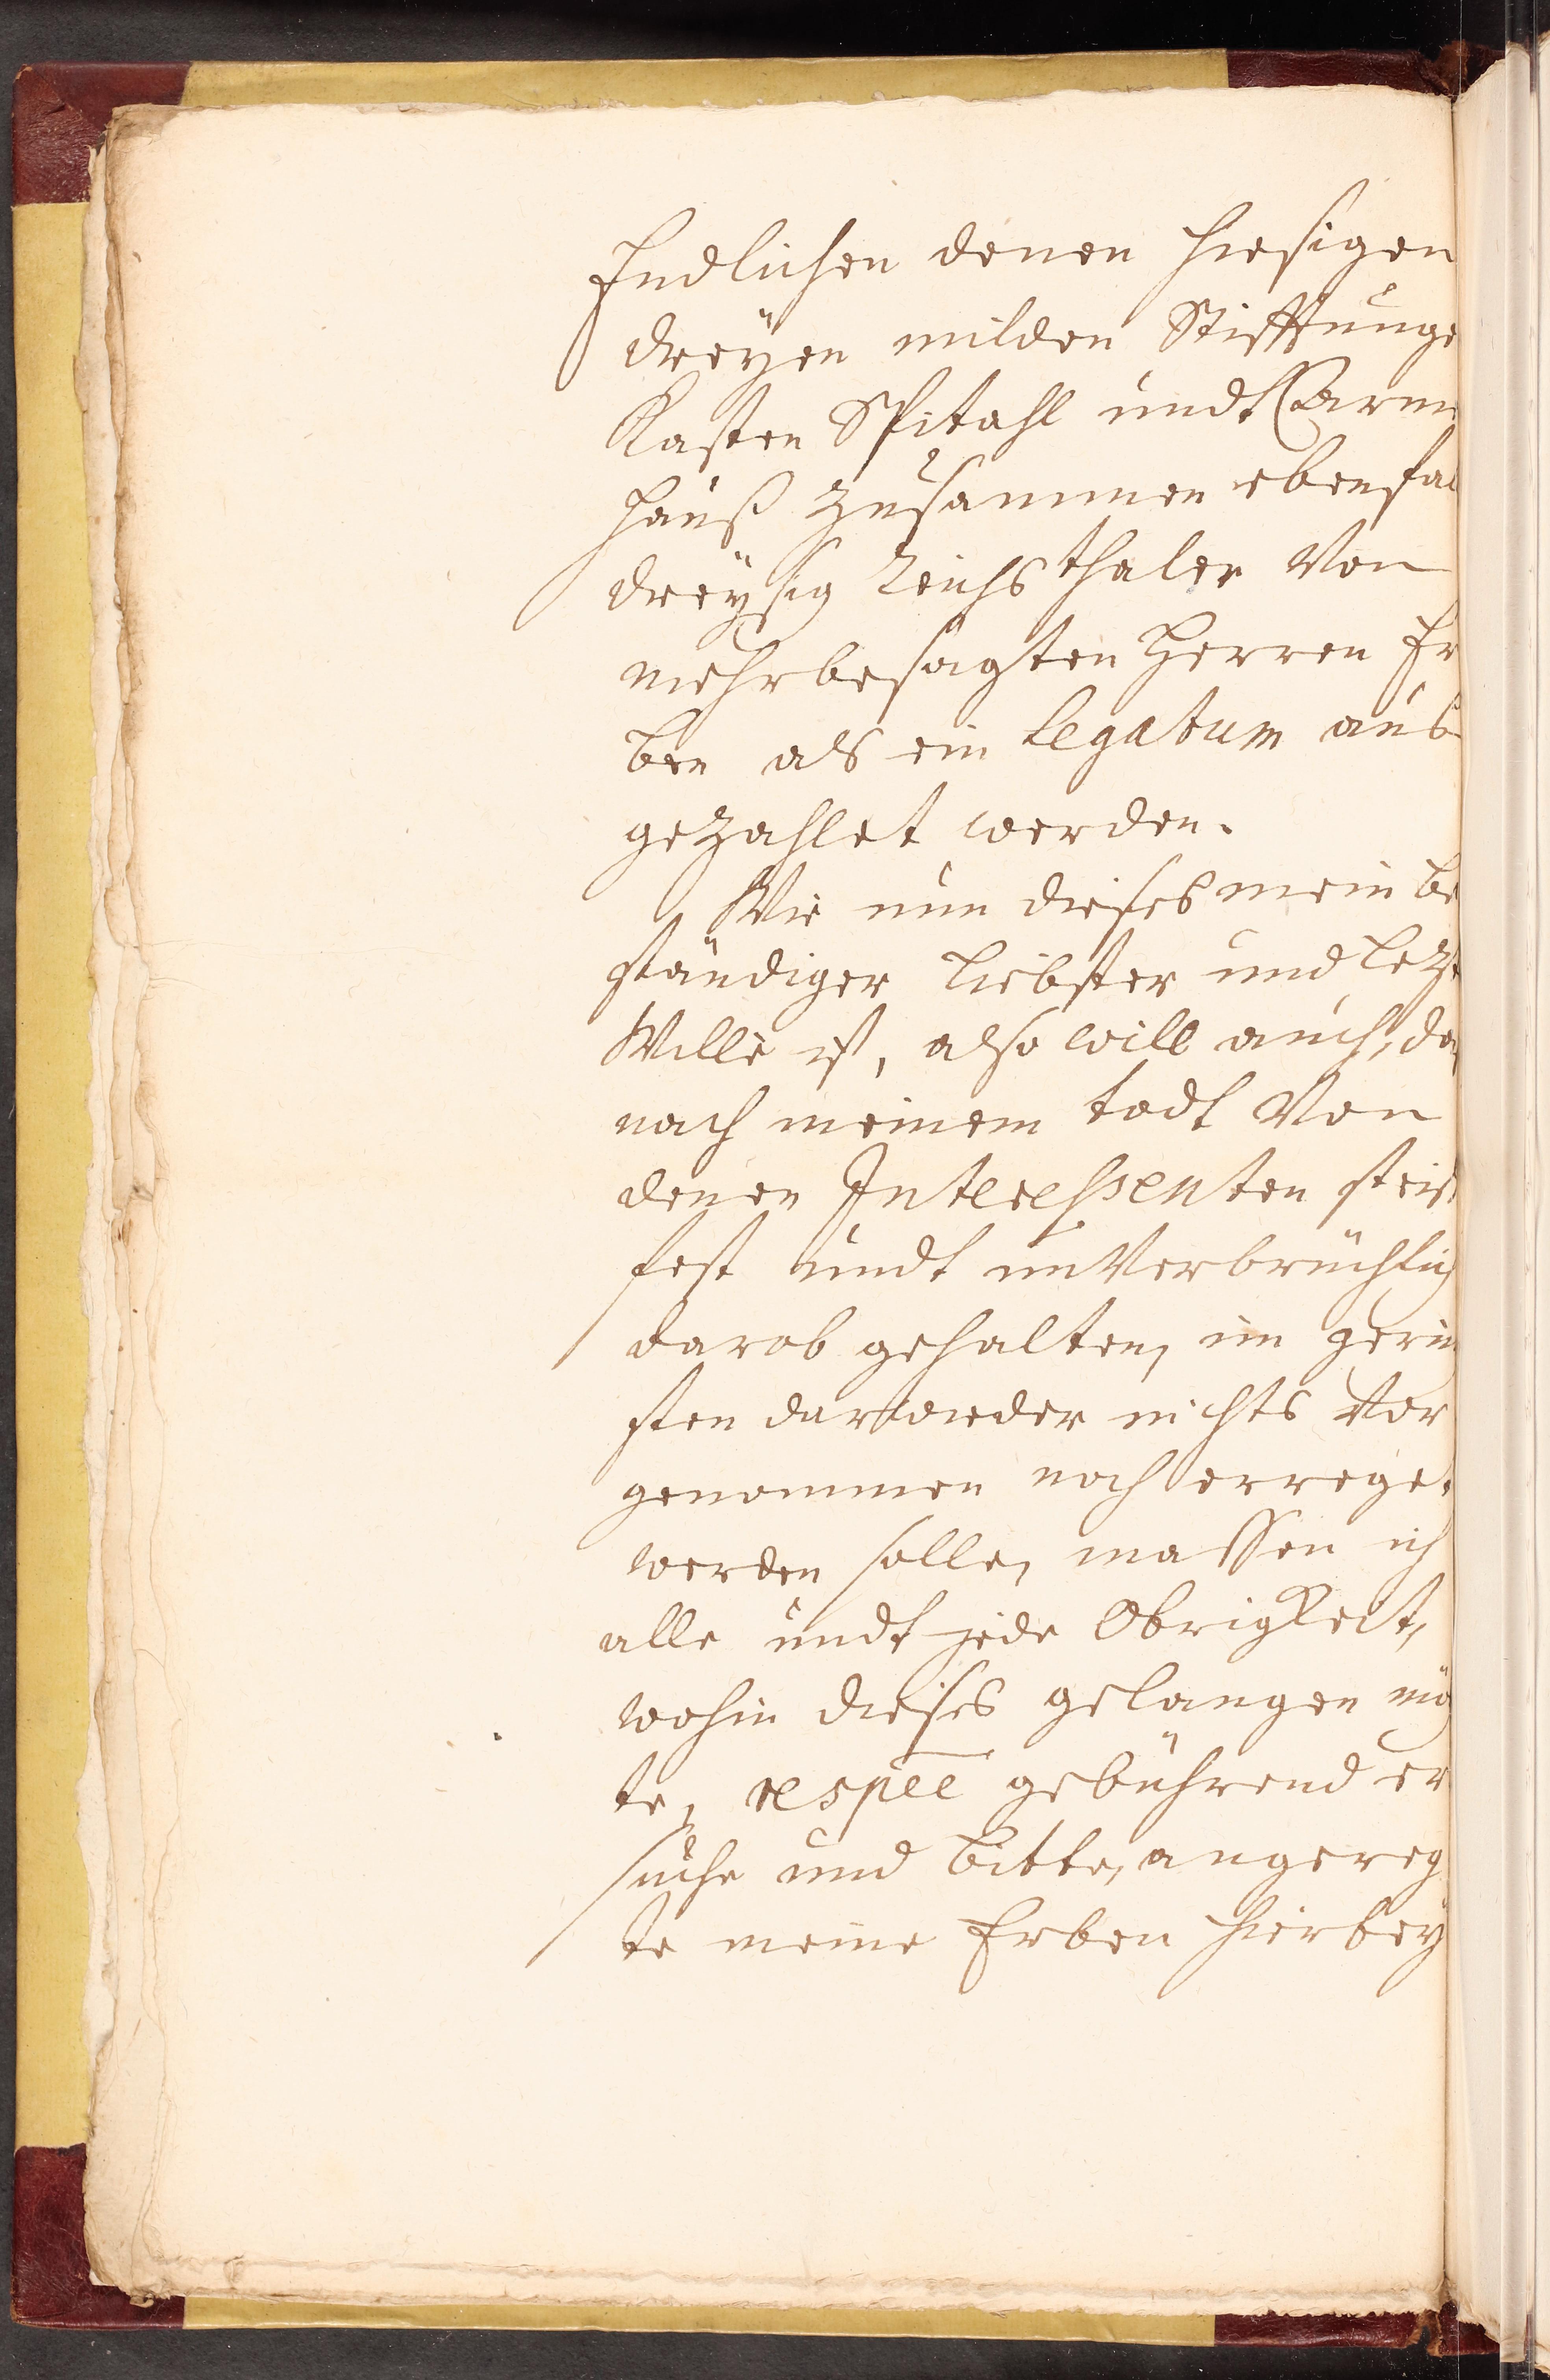 Endlichen denen hiesigen
dreÿen milden Stifftunge
Kasten Spitahl undt Carm
hauß zusammen ebenfal
dreÿsig Reichsthaler Von
mehrbesagten Herren Er
ben als ein legatum aus
gezahlet werden.
Wie nun dieses mein be
ständiger liebster und lezt
Wille ist, also will auch, da
nach meinem todt Von
denen Interessenten steif
fest undt unVerbrüchlich
darob gehalten, im gerin
sten darwieder nichts Vor
genommen noch errege
werden solle, massen ich
alle undt jede Obrigkeit,
wohin dieses gelangen mö
te, respēe gebührend er
suche und bitte, angereg
te meine Erben hierbeÿ